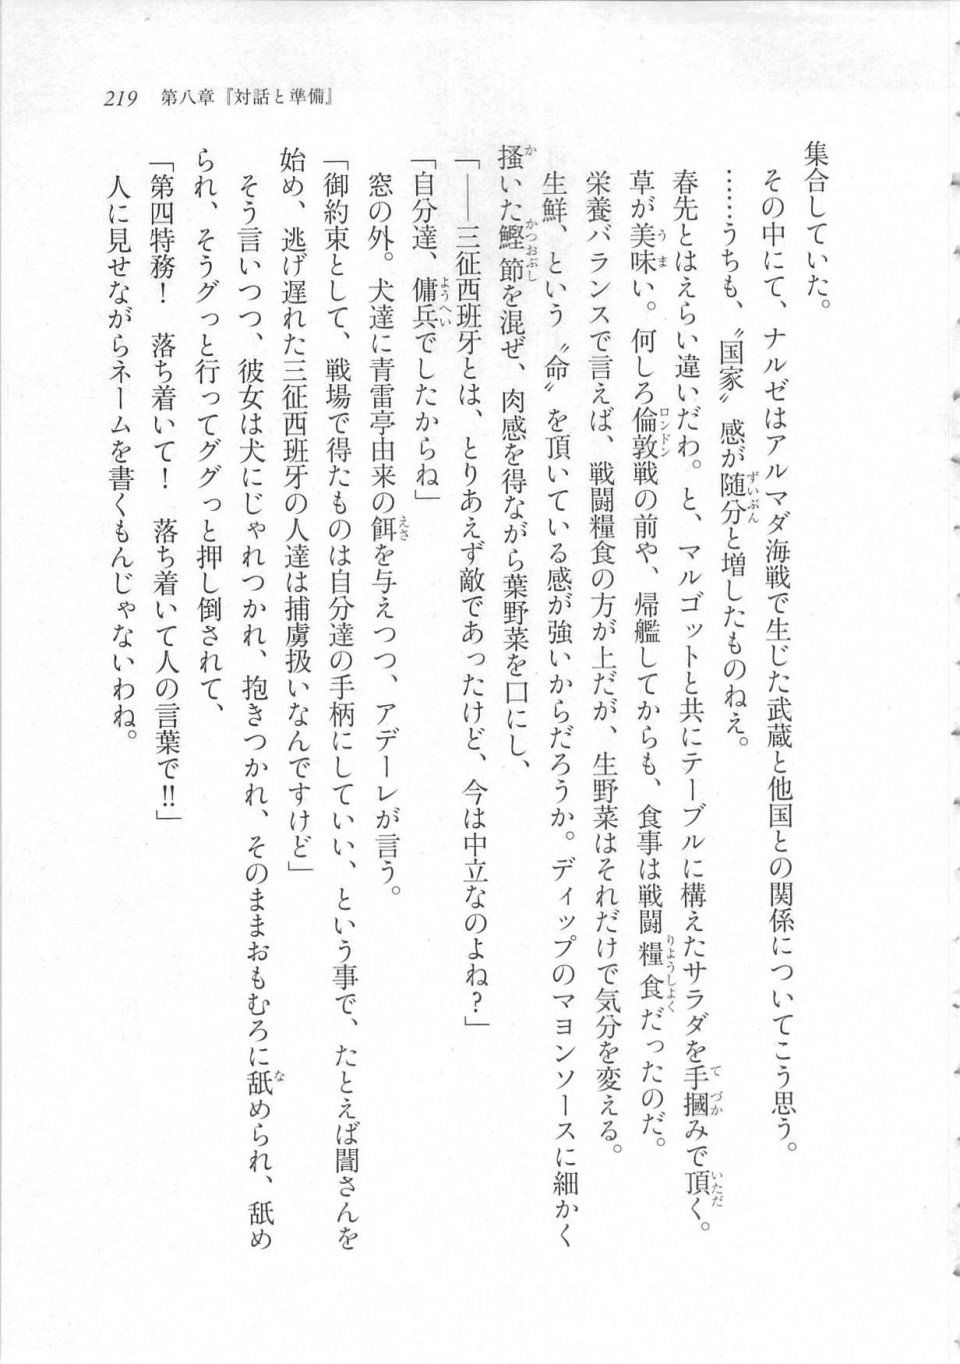 219　第八章『対話と準備』
集合していた。
　その中にて、ナルゼはアルマダ海戦で生じた武蔵と他国との関係についてこう思う。
　……うちも、〝国家〟感が随分と増したものねえ。
　春先とはえらい違いだわ。と、マルゴットと共にテーブルに構えたサラダを手摑みで頂く。
　草が美味い。何しろ倫敦戦の前や、帰艦してからも、食事は戦闘糧食だったのだ。
　栄養バランスで言えば、戦闘糧食の方が上だが、生野菜はそれだけで気分を変える。
　生鮮、という〝命〟を頂いている感が強いからだろうか。ディップのマヨンソースに細かく
掻いた鰹節を混ぜ、肉感を得ながら葉野菜を口にし、
「――三征西班牙とは、とりあえず敵であったけど、今は中立なのよね？」
「自分達、傭兵でしたからね」
　窓の外。犬達に青雷亭由来の餌を与えつつ、アデーレが言う。
「御約束として、戦場で得たものは自分達の手柄にしていい、という事で、たとえば誾さんを
始め、逃げ遅れた三征西班牙の人達は捕虜扱いなんですけど」
　そう言いつつ、彼女は犬にじゃれつかれ、抱きつかれ、そのままおもむろに舐められ、舐め
られ、そうグっと行ってググっと押し倒されて、
「第四特務！　落ち着いて！　落ち着いて人の言葉で!!」
　人に見せながらネームを書くもんじゃないわね。